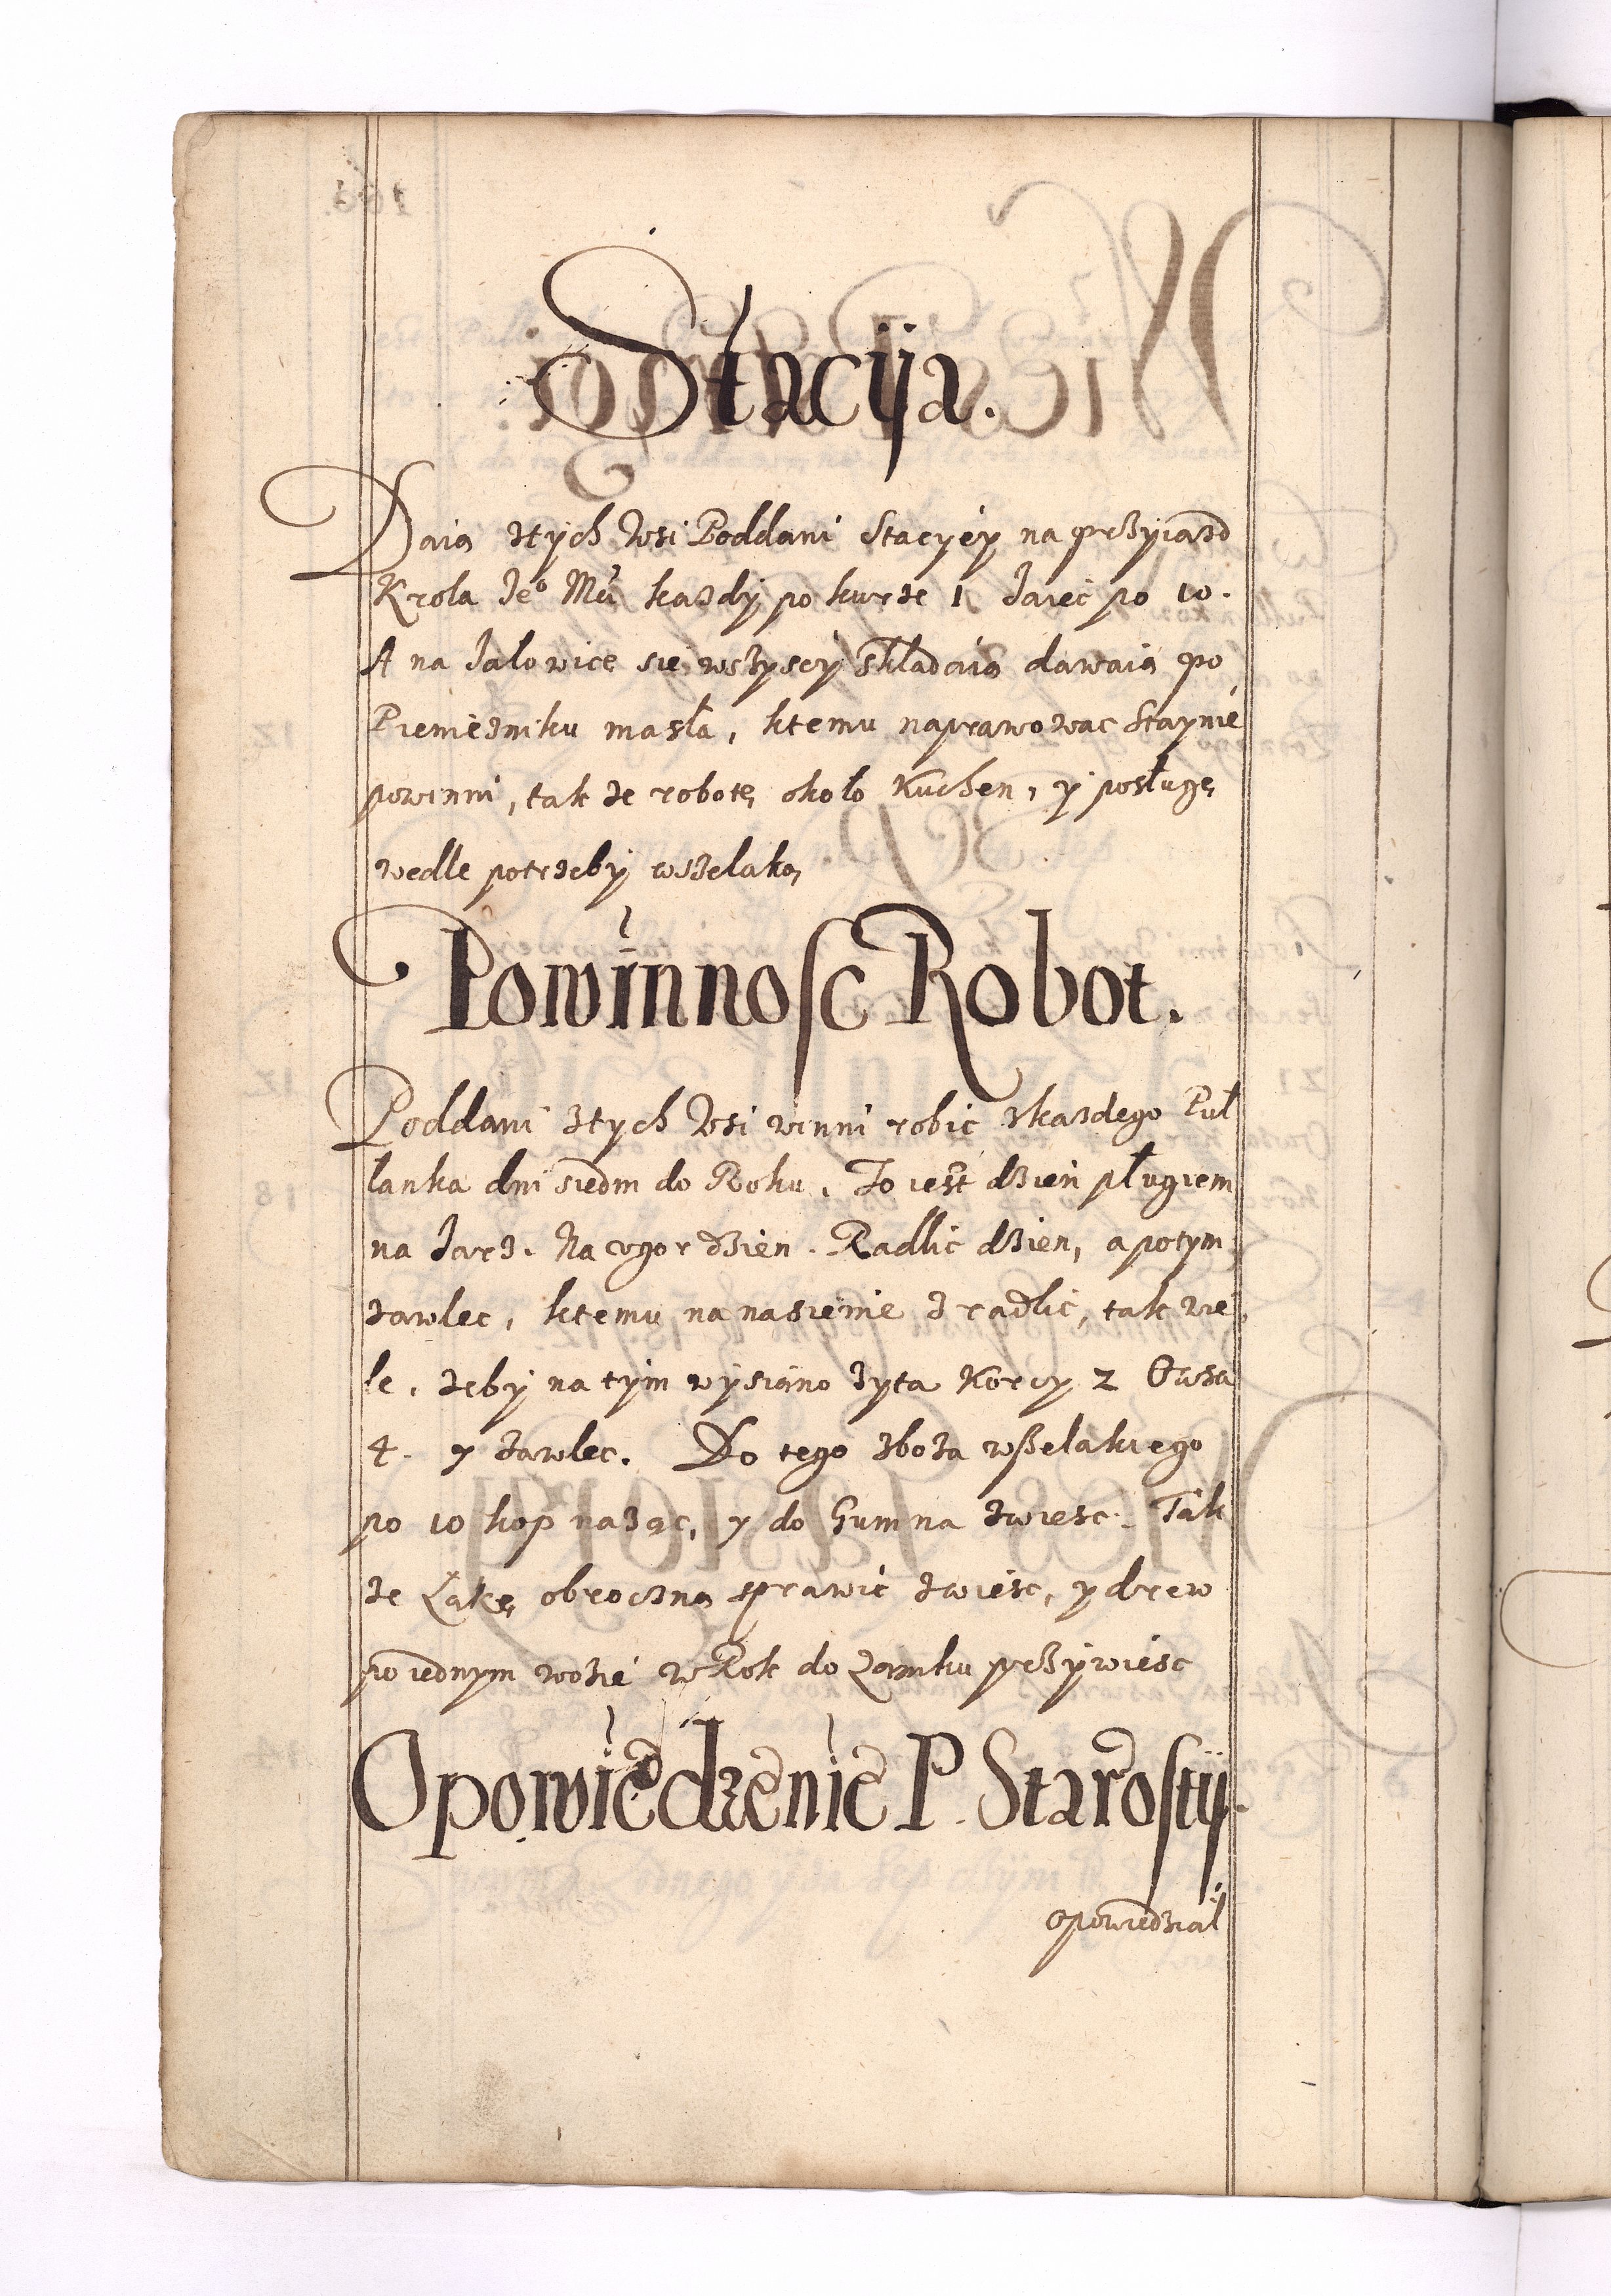 Stacija.
Daią ztych Wsi Poddani Stacyey na przyiazd
Krola Jeº Mči kazdy po kurze 1 Jaiec po 10.
A na Jalowicę się wszyscy składaią dawaią po
Pieniezniku masła, ktemu naprawowac Staynie
powinni, tak ze robotę około Kuchen, y posługę
wedle potrzeby wszelaką
Powinnosc Robot.
Poddani ztych Wsi winni robic zkazdego Puł
łanka dni siedm do Roku. To iest dzien pługiem
na Jarz. Na ugor dzien. Radlic dzien, a potym
zawlec, ktemu na nasienie zradlic, tak wie
le, zeby na tym wysiano zyta Korcy 2 Owsa
4. y zawlec. Do tego zboza wszelakiego
po 10 kop naząc, y do Gumna zwiesc. Tak
ze Łąkę obroczną sprawic zwiesc, y drew
po iednym wozie w Rok do Zamku przywiesc
Opowiedzenie P. Starostij.
opowiedział